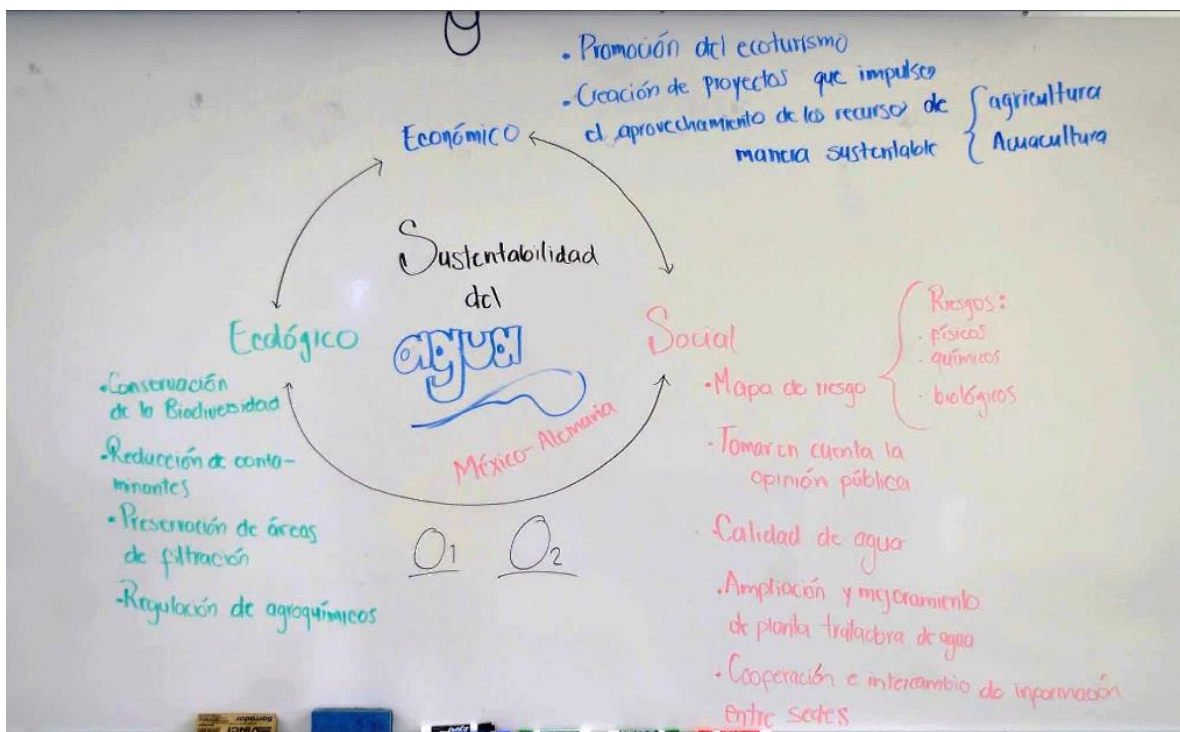 • Promoción del ecoturismo
• Creación de proyectos que impulsen
el aprovechamiento de los recursos de
manera sustentable
agricultura
Acuacultura
Económico
Sustentabilidad
del
agua
México-Alemania
Ecológico
• Conservación
de la Biodiversidad
• Reducción de conta-
minantes
• Preservación de áreas
de filtración
- Regulación de agroquímicos
O1 O2
Social
• Mapa de riesgo
Riesgos:
· físicos
· químicos
· biológicos
· Tomar en cuenta la
opinión pública
· Calidad de agua
• Ampliación y mejoramiento
de planta tratadora de agua
• Cooperación e intercambio de información
entre sedes
borrador